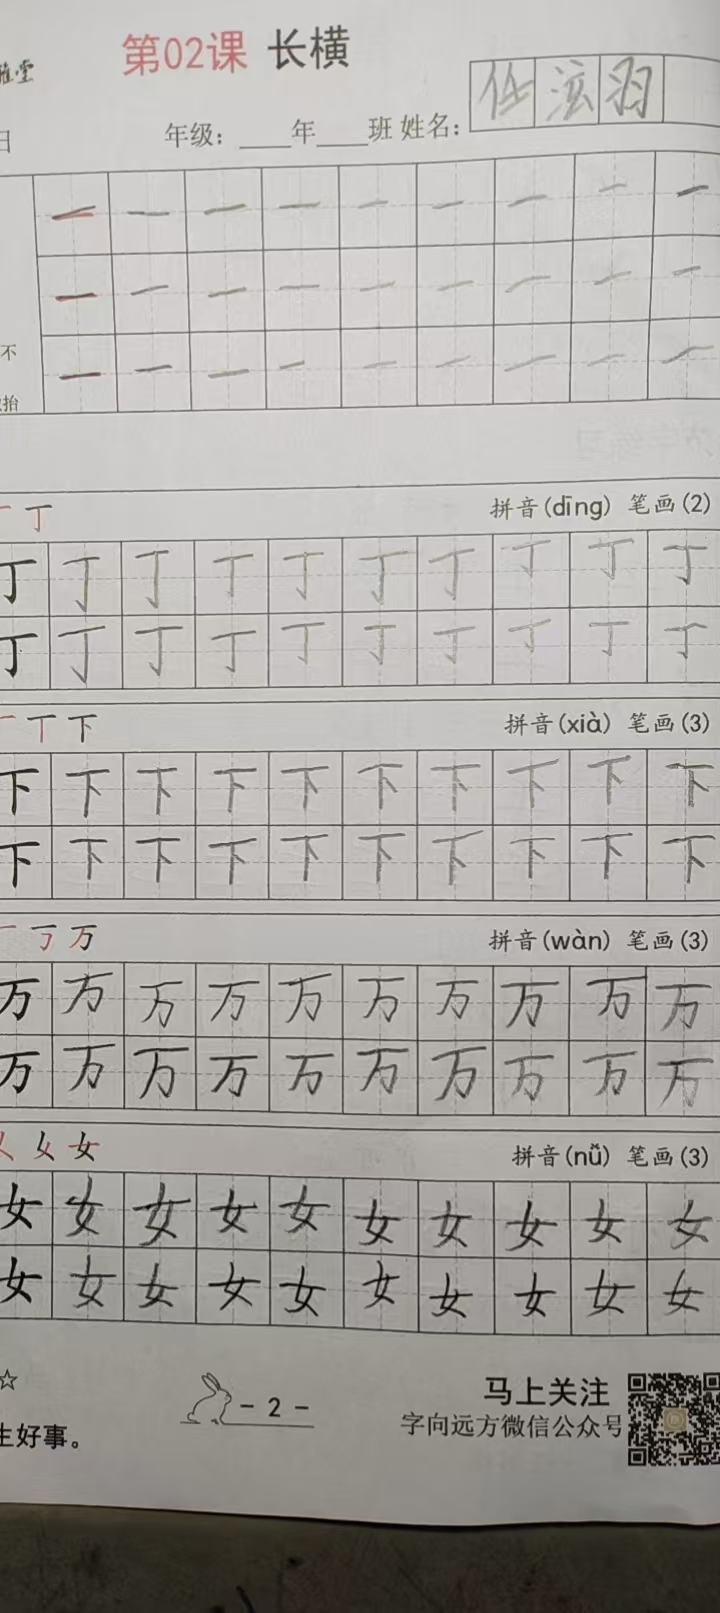 雅堂
第02课 长横
日 年级：____年____班 姓名：任泫羽
一 一 一 一 一 一 一 一 一
一 一 一 一 一 一 一 一 一
不
一 一 一 一 一 一 一 一 一
抬
一 丁 拼音(dīng) 笔画(2)
丁 丁 丁 丁 丁 丁 丁 丁 丁 丁
丁 丁 丁 丁 丁 丁 丁 丁 丁 丁
一 丅 下 拼音(xià) 笔画(3)
下 下 下 下 下 下 下 下 下 下
下 下 下 下 下 下 下 下 下 下
一 丂 万 拼音(wàn) 笔画(3)
万 万 万 万 万 万 万 万 万 万
万 万 万 万 万 万 万 万 万 万
女 拼音(nǚ) 笔画(3)
女 女 女 女 女 女 女 女 女 女
女 女 女 女 女 女 女 女 女 女
☆
生好事。
- 2 -
马上关注
字向远方微信公众号